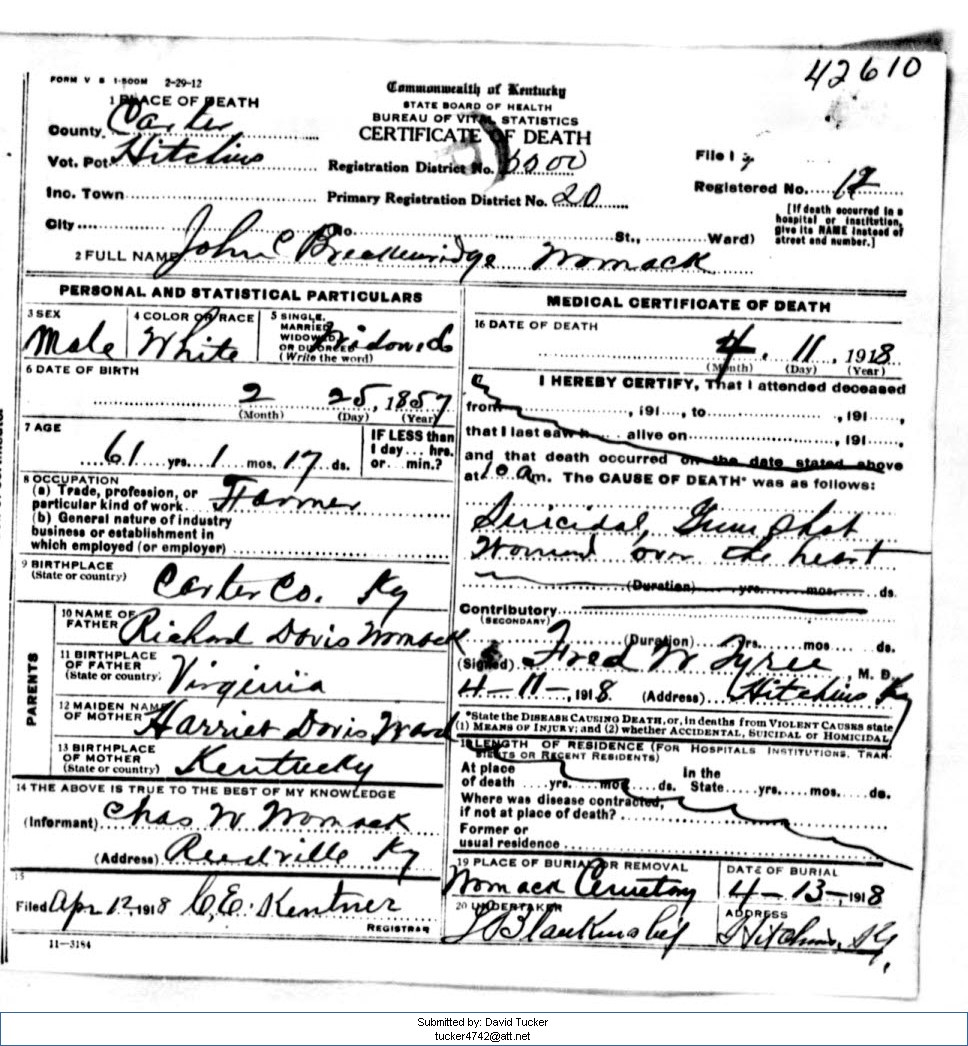 42610
FORM V S 1-500M 2-29-12
Commonwealth of Kentucky
STATE BOARD OF HEALTH
BUREAU OF VITAL STATISTICS
CERTIFICATE OF DEATH
1 PLACE OF DEATH
County. Carter
Vot. Pct. Hitchins
Inc. Town
City
Registration District No.
Primary Registration District No. 20
File
Registered No. 12
No. St., Ward)
[If death occurred in a
hospital or institution,
give its NAME instead of
street and number.]
2 FULL NAME John C Breckenridge Womack
PERSONAL AND STATISTICAL PARTICULARS
3 SEX
Male
4 COLOR OR RACE
White
5 SINGLE,
MARRIED
WIDOWED
OR DIVORCED
(Write the word)
Widowed
6 DATE OF BIRTH
2 25, 1857
(Month) (Day) (Year)
7 AGE
61 yrs. 1 mos. 17 ds.
IF LESS than
1 day... hrs.
or... min.?
8 OCCUPATION
(a) Trade, profession, or
particular kind of work Farmer
(b) General nature of industry
business or establishment in
which employed (or employer)
9 BIRTHPLACE
(State or country) Carter Co. Ky
PARENTS
10 NAME OF
FATHER Richard Davis Womack
11 BIRTHPLACE
OF FATHER
(State or country) Virginia
12 MAIDEN NAME
OF MOTHER Harriet Davis Ward
13 BIRTHPLACE
OF MOTHER
(State or country) Kentucky
14 THE ABOVE IS TRUE TO THE BEST OF MY KNOWLEDGE
(Informant) Chas W Womack
(Address) Reedville Ky
15
Filed Apr 12, 1918 C.E. Kentner
REGISTRAR
11-3184
MEDICAL CERTIFICATE OF DEATH
16 DATE OF DEATH
4. 11, 1918
(Month) (Day) (Year)
I HEREBY CERTIFY, That I attended deceased
from , 191...., to , 191....,
that I last saw h.... alive on , 191....,
and that death occurred on the date stated above
at 10 am. The CAUSE OF DEATH* was as follows:
Suicidal Gun Shot
Wound over the heart
(Duration) yrs. mos. ds.
Contributory
(SECONDARY)
(Duration) yrs. mos ds.
(Signed) Fred W Tyree, M. D.
4-11-, 1918 (Address) Hitchins Ky
*State the DISEASE CAUSING DEATH, or, in deaths from VIOLENT CAUSES state
(1) MEANS OF INJURY; and (2) whether ACCIDENTAL, SUICIDAL or HOMICIDAL
18 LENGTH OF RESIDENCE (FOR HOSPITALS INSTITUTIONS, TRAN-
SIENTS OR RECENT RESIDENTS)
At place
of death yrs. mos. ds.
In the
State yrs. mos. ds.
Where was disease contracted,
if not at place of death?
Former or
usual residence
19 PLACE OF BURIAL OR REMOVAL
Womack Cemetery
DATE OF BURIAL
4-13-, 1918
20 UNDERTAKER
ADDRESS
Hitchins, Ky.
Submitted by: David Tucker
tucker4742@att.net